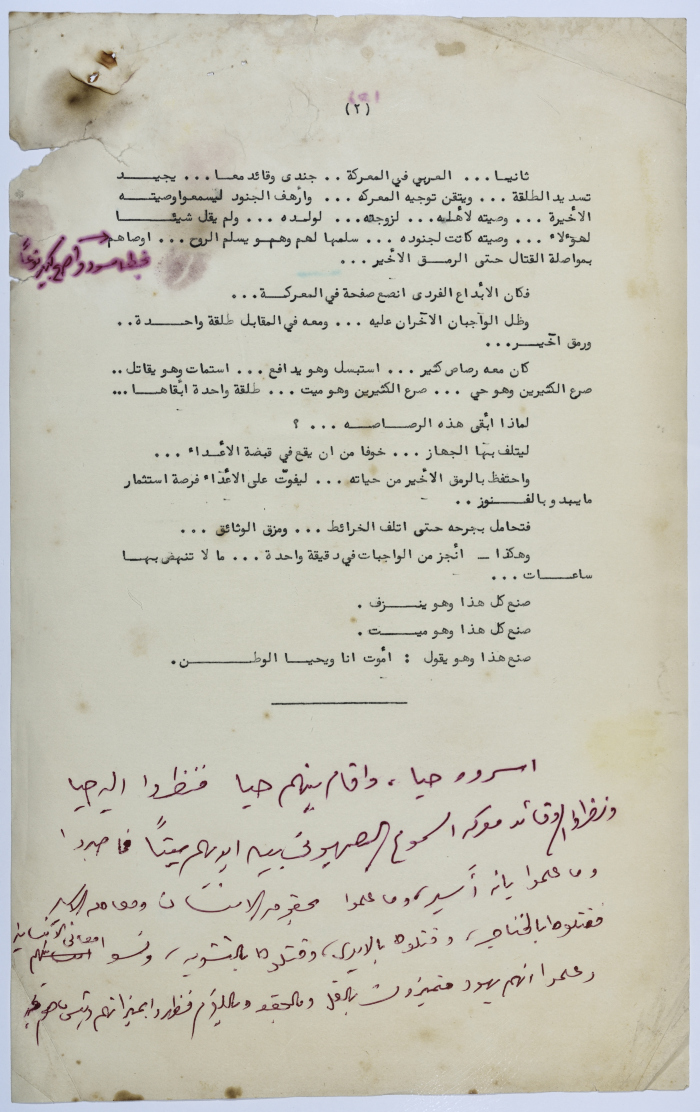 (٢)
ثانيا ... العربي في المعركة .. جندى وقائد معا ... يجيد
تسديد الطلقة ... ويتقن توجيه المعركه ... وأرهف الجنود ليسمعوا وصيته
الاخيرة ... وصيته لأهليه ... لزوجته ... لولده ... ولم يقل شيئا
لهؤلاء ... وصيته كانت لجنوده ... سلمها لهم وهو يسلم الروح ... اوصاهم
بمواصلة القتال حتى الرمق الأخير ...
فكان الأبداع الفردى انصع صفحة في المعركة ...
وظل الواجبان الآخران عليه ... ومعه في المقابل طلقة واحدة ..
ورمق آخير ...
كان معه رصاص كثير ... استبسل وهو يدافع ... استمات وهو يقاتل ..
صرع الكثيرين وهو حي ... صرع الكثيرين وهو ميت ... طلقة واحدة ابقاها ...
لماذا ابقى هذه الرصاصه ... ؟
ليتلف بها الجهاز ... خوفا من ان يقع في قبضة الأعداء ...
واحتفظ بالرمق الأخير من حياته ... ليفوت على الأعداء فرصة استثمار
مابيد و بالفنوز ..
فتحامل بجرحه حتى اتلف الخرائط ... ومزق الوثائق ...
وهكذا ـ انجز من الواجبات في دقيقة واحدة ... ما لا تنهض بها
ساعات ...
صنع كل هذا وهو ينزف .
صنع كل هذا وهو ميت .
صنع هذا وهو يقول : اموت انا ويحيا الوطن .
اسروه حيا ، واقام بينهم حيا فنظروا اليه حيا
ونظروا قائد معركة السموع الصهيوني بين ايديهم ميتاً فما صبروا
وما علموا بانه أسير ، وما علموا بحقوق الانسان ومعاملة
فقتلوه بالخناجر ، وقتلوه بالايدى ، وقتلوه بالتشويه ، ونسوا
وعلموا انهم يهود متميزون بالقتل وبالحقد وباللؤم